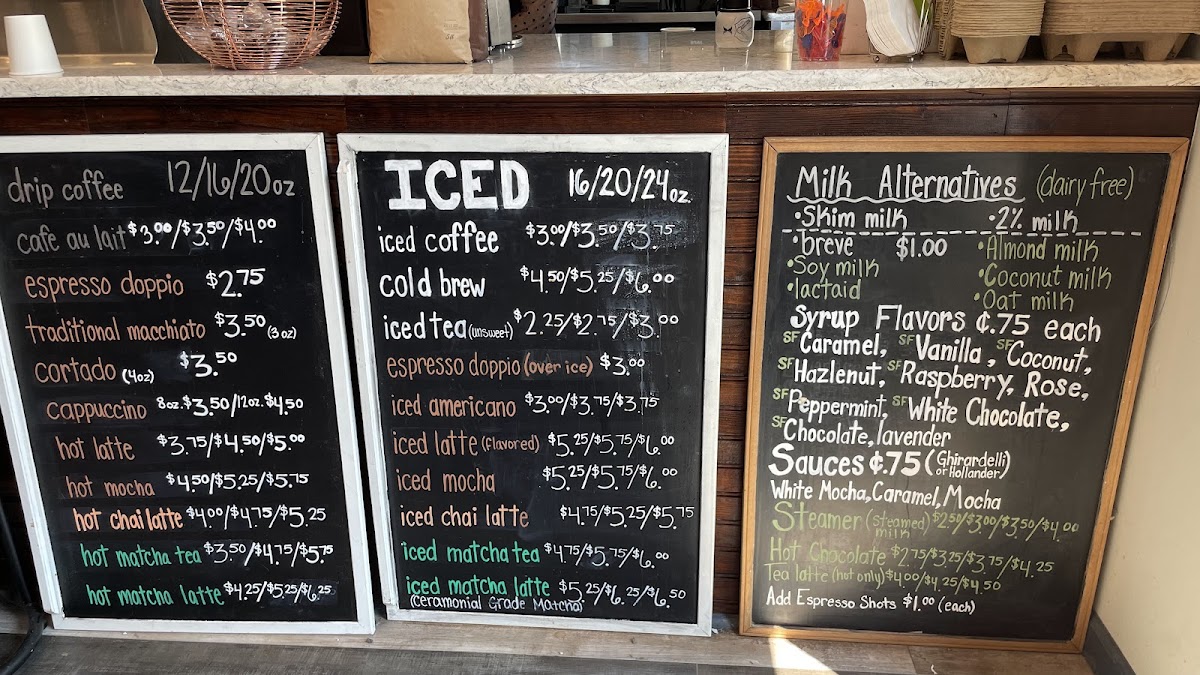 drip coffee 12/16/20oz
cafe au lait $3.00/$3.50/$4.00
espresso doppio $2.75
traditional macchiato $3.50 (3 oz)
cortado (4oz) $3.50
cappuccino 8oz.$3.50/12oz.$4.50
hot latte $3.75/$4.50/$5.00
hot mocha $4.50/$5.25/$5.75
hot chai latte $4.00/$4.75/$5.25
hot matcha tea $3.50/$4.75/$5.75
hot matcha latte $4.25/$5.25/$6.25
ICED 16/20/24oz.
iced coffee $3.00/$3.50/$3.75
cold brew $4.50/$5.25/$6.00
iced tea (unsweet) $2.25/$2.75/$3.00
espresso doppio (over ice) $3.00
iced americano $3.00/$3.75/$3.75
iced latte (flavored) $5.25/$5.75/$6.00
iced mocha $5.25/$5.75/$6.00
iced chai latte $4.75/$5.25/$5.75
iced matcha tea $4.75/$5.75/$6.00
iced matcha latte $5.25/$6.25/$6.50
(Ceramonial Grade Matcha)
Milk Alternatives (dairy free)
•Skim milk •2% milk
•breve $1.00 •Almond milk
•Soy milk •Coconut milk
•lactaid •Oat milk
Syrup Flavors ¢.75 each
SF Caramel, SF Vanilla, SF Coconut,
SF Hazlenut, SF Raspberry, Rose,
SF Peppermint, SF White Chocolate,
SF Chocolate, lavender
Sauces ¢.75 (Ghirardelli or Hollander)
White Mocha, Caramel, Mocha
Steamer (steamed milk) $2.50/$3.00/$3.50/$4.00
Hot Chocolate $2.75/$3.25/$3.75/$4.25
Tea latte (hot only) $4.00/$4.25/$4.50
Add Espresso Shots $1.00 (each)